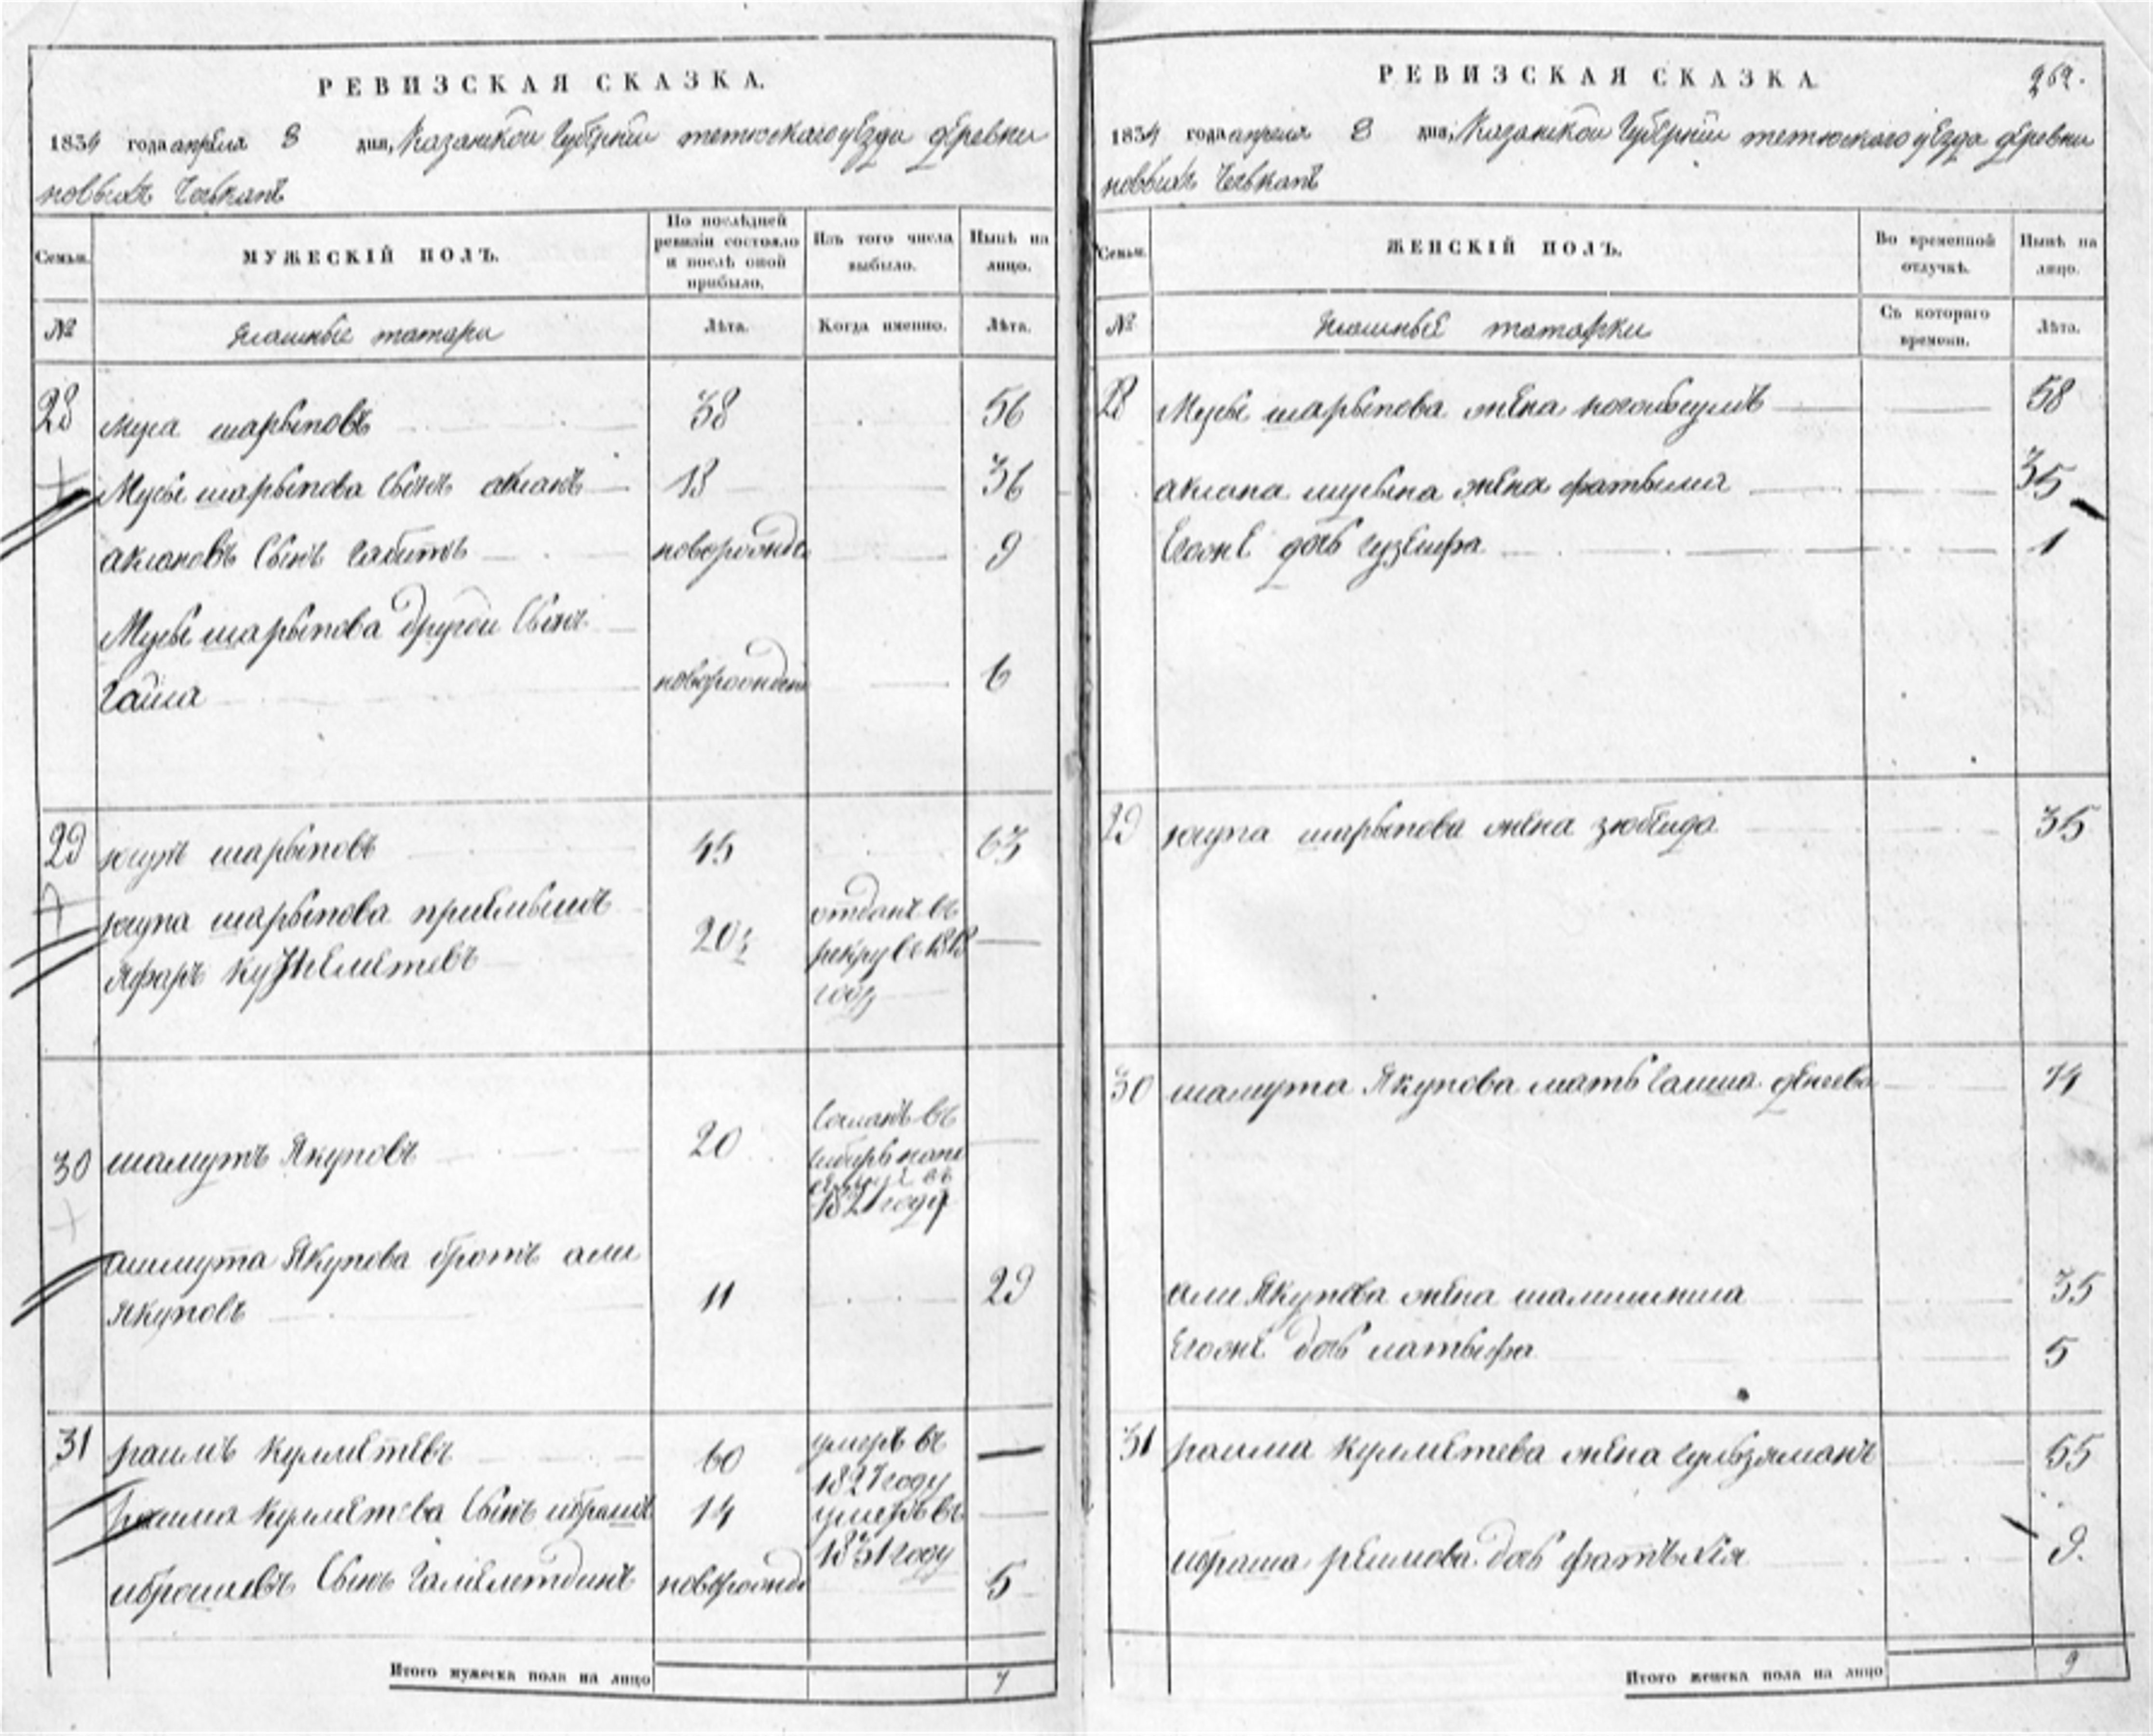 РЕВИЗСКАЯ СКАЗКА.
1834 года апреля 8 дня, Казанской Губернии тетюскаго уезда деревни
новыхъ
Семьи.
МУЖЕСКІЙ ПОЛЪ.
По послѣдней ревизіи состояло и послѣ оной прибыло.
Изъ того числа выбыло.
Нынѣ на лицо.
№
татары
Лѣта.
Когда именно.
Лѣта.
28 Муса шарыповъ 38 56
Мусы шарыпова Сынъ аклапъ 18 36
аклаповъ Сынъ габитъ новорожде 9
Мусы шарыпова другой Сынъ
Гайса новорожден 6
29 юсупъ шарыповъ 45 63
юсупа шарыпова приемышъ
Яфаръ 20½ отданъ въ рекру въ 1818 году
30 шамутъ Якуповъ 20 Сосланъ въ Сибирь на въ 1821 году
шамута Якупова братъ али
Якуповъ 11 29
31 раимъ кулмметевъ 60 умеръ въ 1827 году
раима кулметева Сынъ ибрашъ 14 умеръ въ 1831 году
ибрашевъ Сынъ Галелетдинъ новорожде 5
Итого мужеска пола на лицо 7
РЕВИЗСКАЯ СКАЗКА 262.
1834 года апреля 8 дня, Казанской Губернии тетюскаго уезда деревни
новыхъ
Семьи.
ЖЕНСКІЙ ПОЛЪ.
Во временной отлучкѣ.
Нынѣ на лицо.
№
татарки
Съ котораго времени.
Лѣта.
28 Мусы шарыпова жена 58
аклапа мусына жена фатыма 35
Егоже дочь гузеифа 1
29 юсупа шарыпова жена зюбеида 35
30 шамута Якупова мать 74
али Якупова жена 35
Егоже дочь латыфа 5
31 раима кулметева жена гульзяманъ 55
ибраша реимова дочь 9.
Итого женска пола на лицо 9